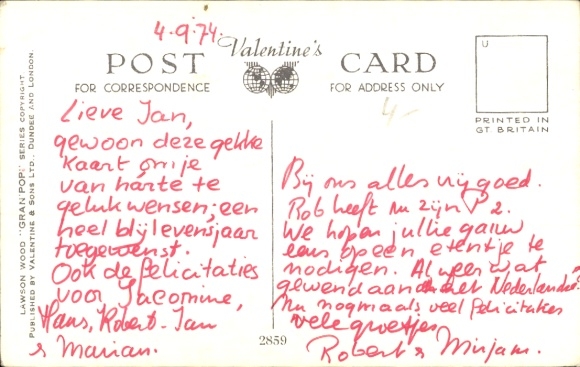 4.9.74.
Valentine's
POST CARD
FOR CORRESPONDENCE
FOR ADDRESS ONLY
PRINTED IN
GT. BRITAIN
LAWSON WOOD "GRAN'POP" SERIES COPYRIGHT
PUBLISHED BY VALENTINE & SONS LTD., DUNDEE AND LONDON.
4-
Lieve Jan,
gewoon deze gekke
kaart om je
van harte te
gelukwensen; een
heel blij levensjaar
toegewenst.
Ook de felicitaties
voor Jacomine,
Hans, Robert-Jan
& Marian.
Bij ons alles vrij goed.
Rob heeft nu zijn P2.
We hopen jullie gauw
eens op een etentje te
nodigen. Al weer wat
gewend aan het Nederlandse?
Nu nogmaals veel felicitaties
vele groetjes
Robert & Mirjam.
2859